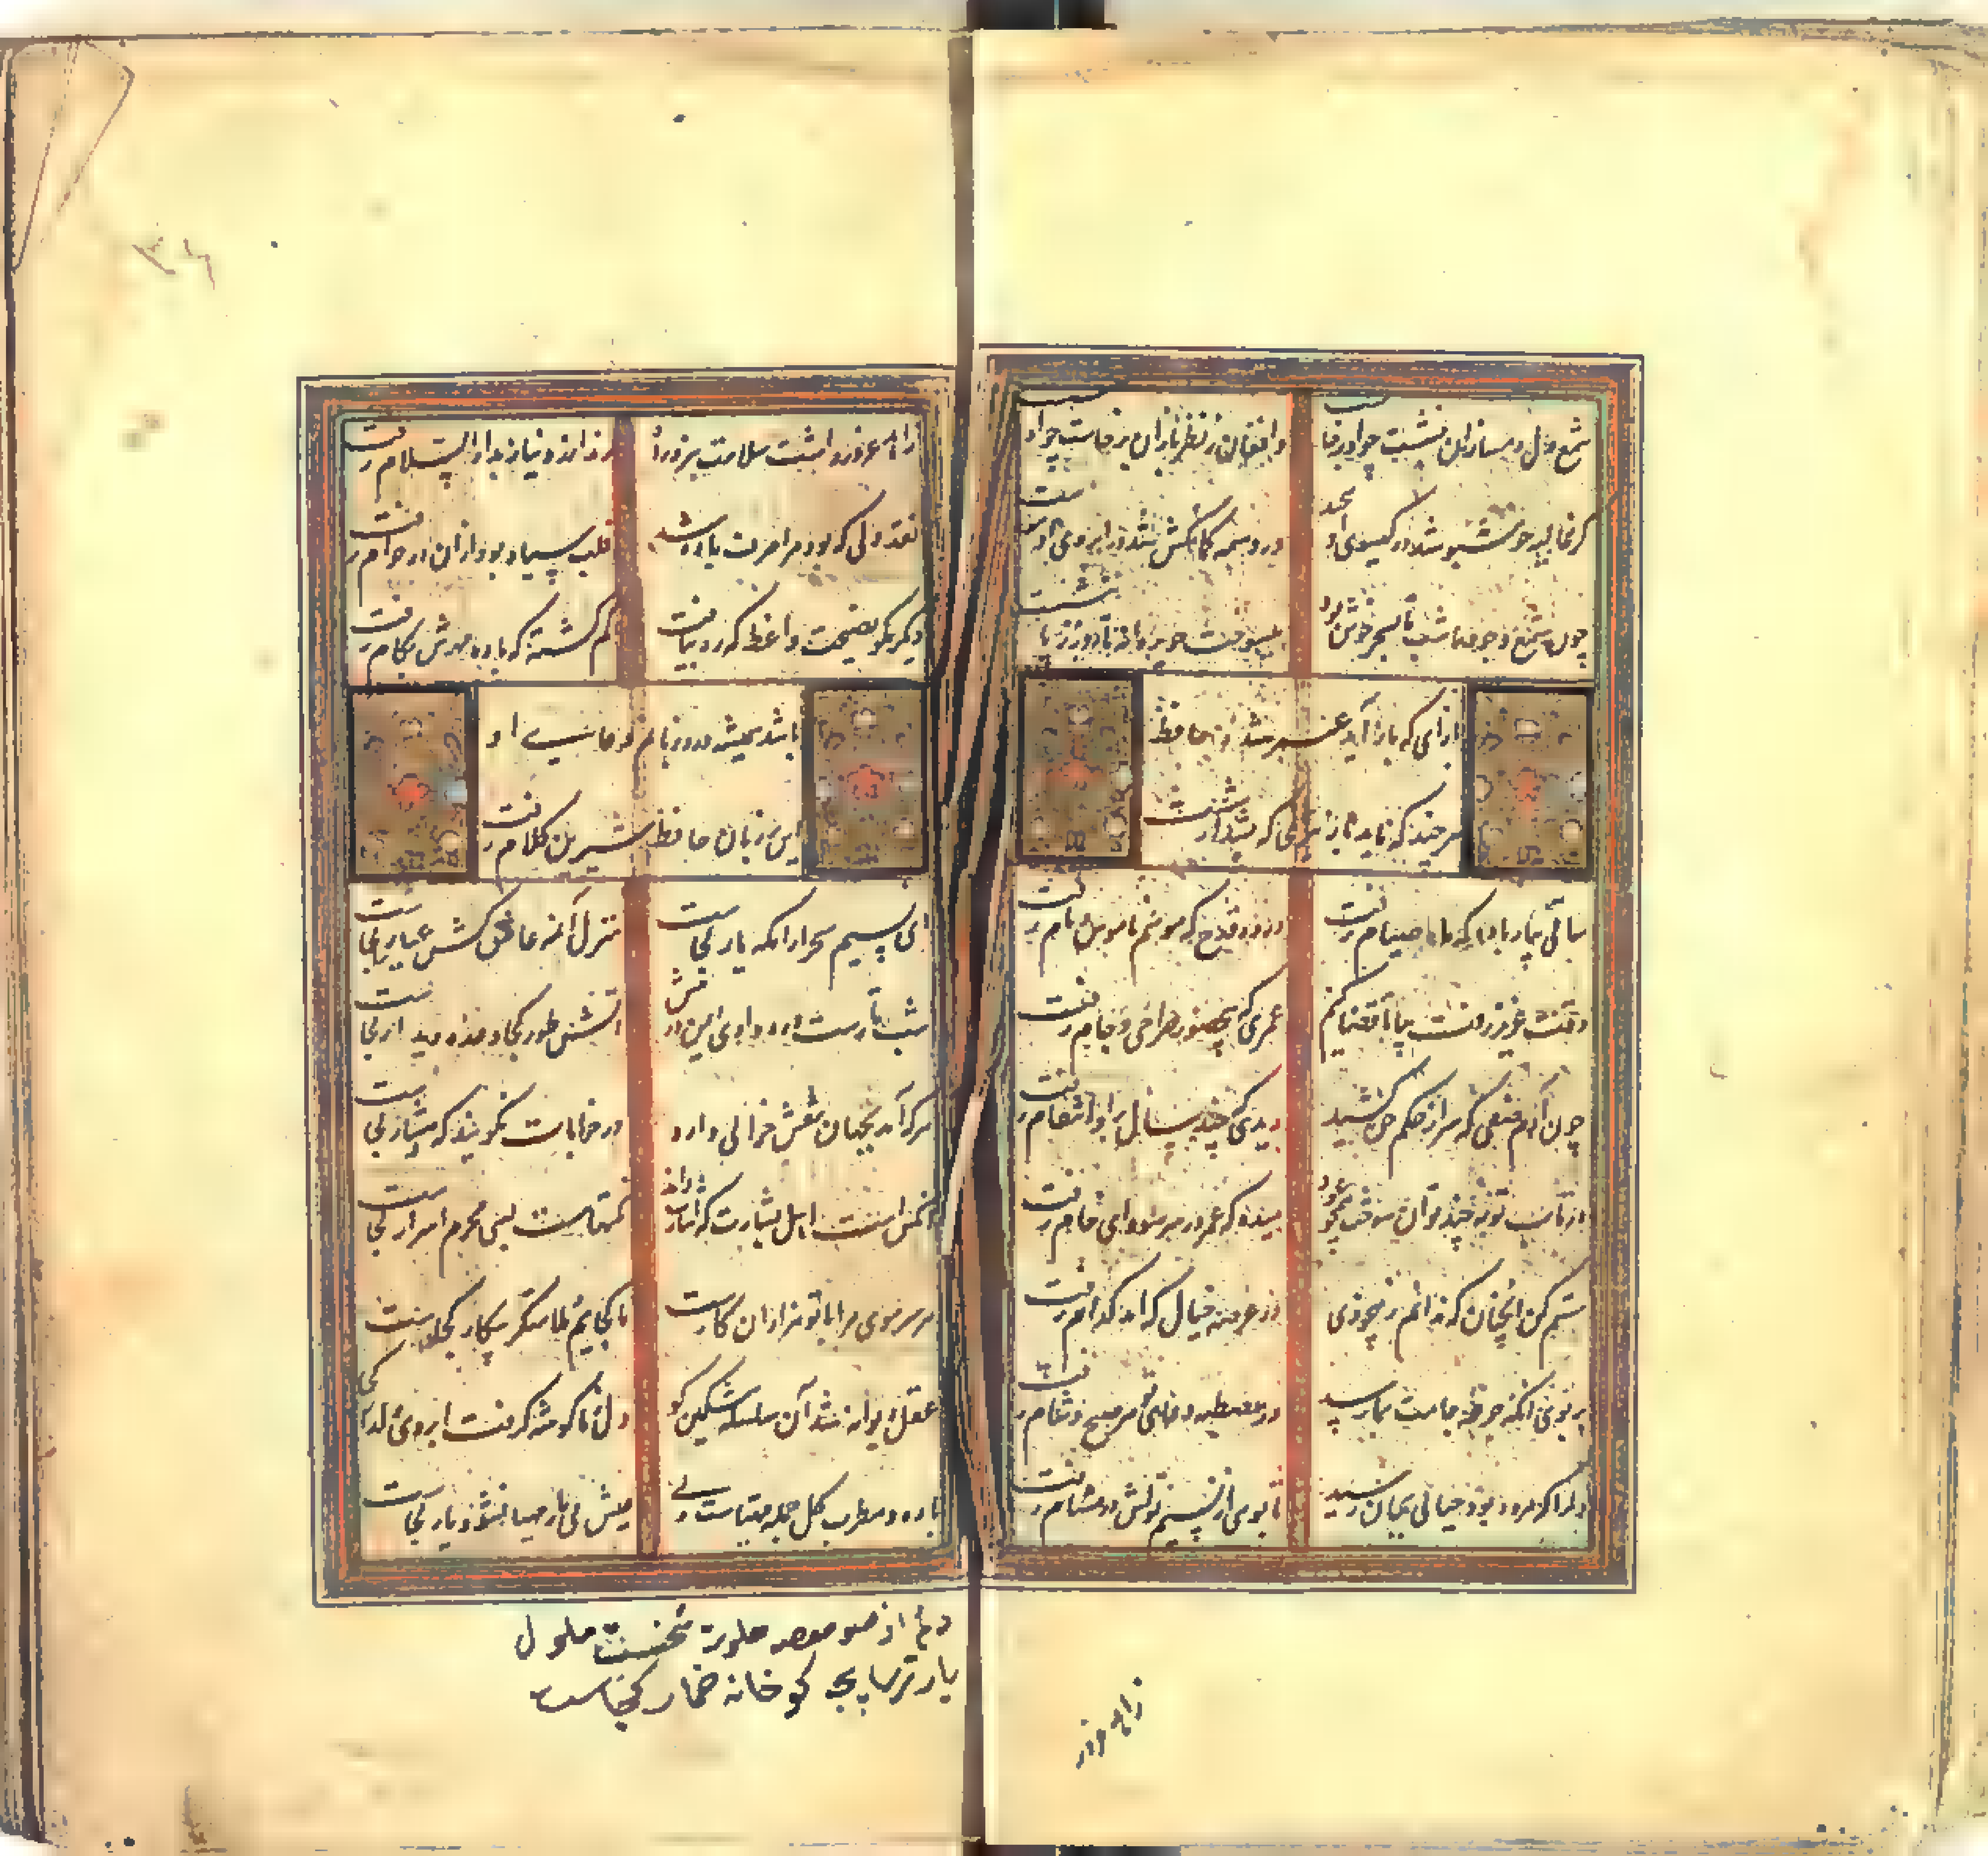 شمع دل دمسازان بنشست چو او برخاست
و افغان ز نظربازان برخاست چو او بنشست
گر غالیه خوشبو شد در گیسوی او پیچید
ور وسمه کمانکش شد در ابروی او پیوست
چون شمع وجود من شب تا بسحر خود را
میسوخت چو پروانه تا روز ز پا ننشست
بازآی که بازآید عمر شده حافظ
هرچند که ناید باز تیری که بشد از شست
ساقی بیار باده که ماه صیام رفت
در ده قدح که موسم ناموس و نام رفت
وقت عزیز رفت بیا تا قضا کنیم
عمری که بی حضور صراحی و جام رفت
سر از حکم حق کشید
در تاب توبه چند توان سوخت همچو عود
می ده که عمر در سر سودای خام رفت
مستم کن آنچنان که ندانم ز بیخودی
در عرصه خیال که آمد کدام رفت
بر بوی آنکه جرعه جامت بما رسد
در مصطبه دعای تو هر صبح و شام رفت
دلرا که مرده بود حیاتی بجان رسید
تا بوی از نسیم تواش در مشام رفت
زاهد غرور
زاهد غرور داشت سلامت نبرد راه
رند از ره نیاز بدار السلام رفت
نقد دلی که بود مرا صرف باده شد
قلب سیاه بود از آن در حرام رفت
دیگر مگو نصیحت واعظ که ره نیافت
گم گشته که باده مهرش بکام رفت
باشد همیشه ورد زبانم دعای او
این زبان حافظ شیرین کلام رفت
ای نسیم سحر آرامگه یار کجاست
منزل آن مه عاشق کش عیار کجاست
شب تارست و ره وادی ایمن در پیش
آتش طور کجا وعده دیدار کجاست
هر که آمد بجهان نقش خرابی دارد
در خرابات نگویند که هشیار کجاست
آنکس است اهل بشارت که اشارت داند
نکتها هست بسی محرم اسرار کجاست
هر سر موی مرا با تو هزاران کارست
ما کجاییم و ملامتگر بیکار کجاست
عقل دیوانه شد آن سلسله مشکین کو
دل ز ما گوشه گرفت ابروی دلدار کجاست
باده و مطرب و گل جمله مهیاست ولی
عیش بی یار مهیا نشود یار کجاست
دلم از صومعه و خلوت شیخست ملول
یار ترسا بچه کو خانه خمار کجاست